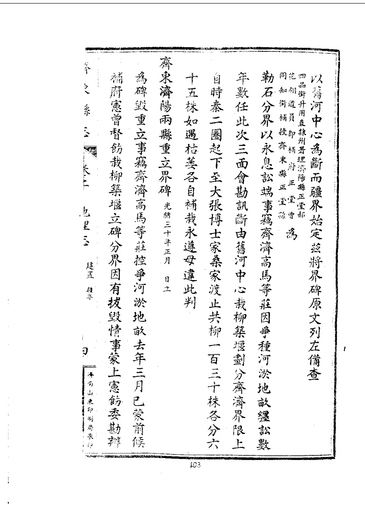 以舊河中心為斷而疆界始定茲將界碑原文列左備查
四品銜升用直隸州署理濟陽縣正堂鄭
花翎道員即補府正堂曹　為
同知銜補授齊東縣正堂
勒石分界以永息訟端事竊齊濟高馬等莊因爭種河淤地畝纏訟數
年數任此次三面會勘訊斷由舊河中心栽柳築堰劃分齊濟界限上
自時秦二圈起下至大張博士家桑家渡止共柳一百三十株各分六
十五株如遇枯萎各自補栽永遵毋違此判
齊東濟陽兩縣重立界碑　光緒三十年正月　日立
為碑毀重立事竊齊濟高馬等莊控爭河淤地畝去年三月已蒙前候
補府憲曾督飭栽柳築堰立碑分界因有拔毀情事蒙上憲飭委勘辦
齊東縣志　卷二　地理志　建置　四
濟南山東印刷局承印
103